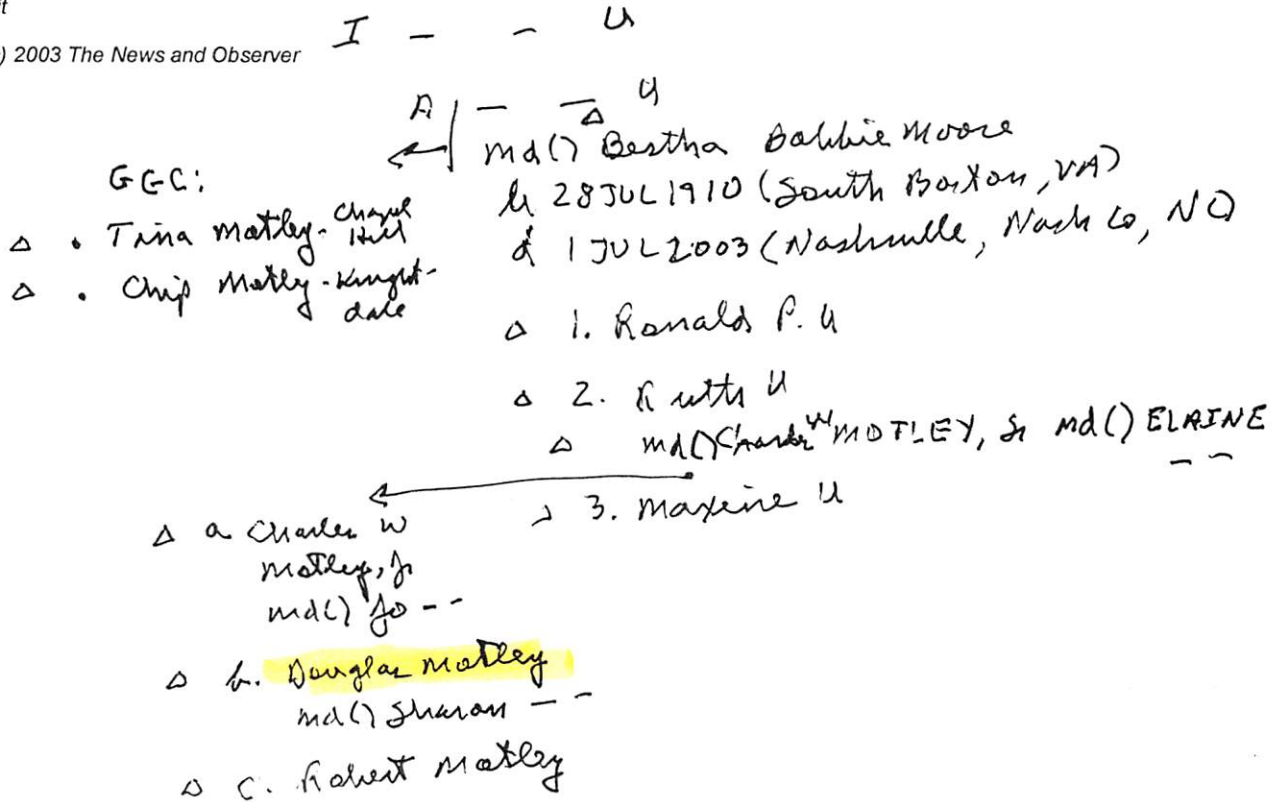 t
) 2003 The News and Observer
I – – U
A – – U
md() Bertha Dabbie Moore
b 28 JUL 1910 (South Boston, VA)
d 1 JUL 2003 (Nashville, Nash Co, NC)
GGC:
Δ • Tina Motley - Chapel Hill
Δ • Chip Motley - Knight-
dale
Δ 1. Ronald P. U
Δ 2. Ruth U
Δ md() Charles W MOTLEY, Sr md() ELAINE – –
3. Maxine U
Δ a Charles W
Motley, Jr
md() Jo - -
Δ b. Douglas Motley
md() Sharon – –
Δ c. Robert Motley